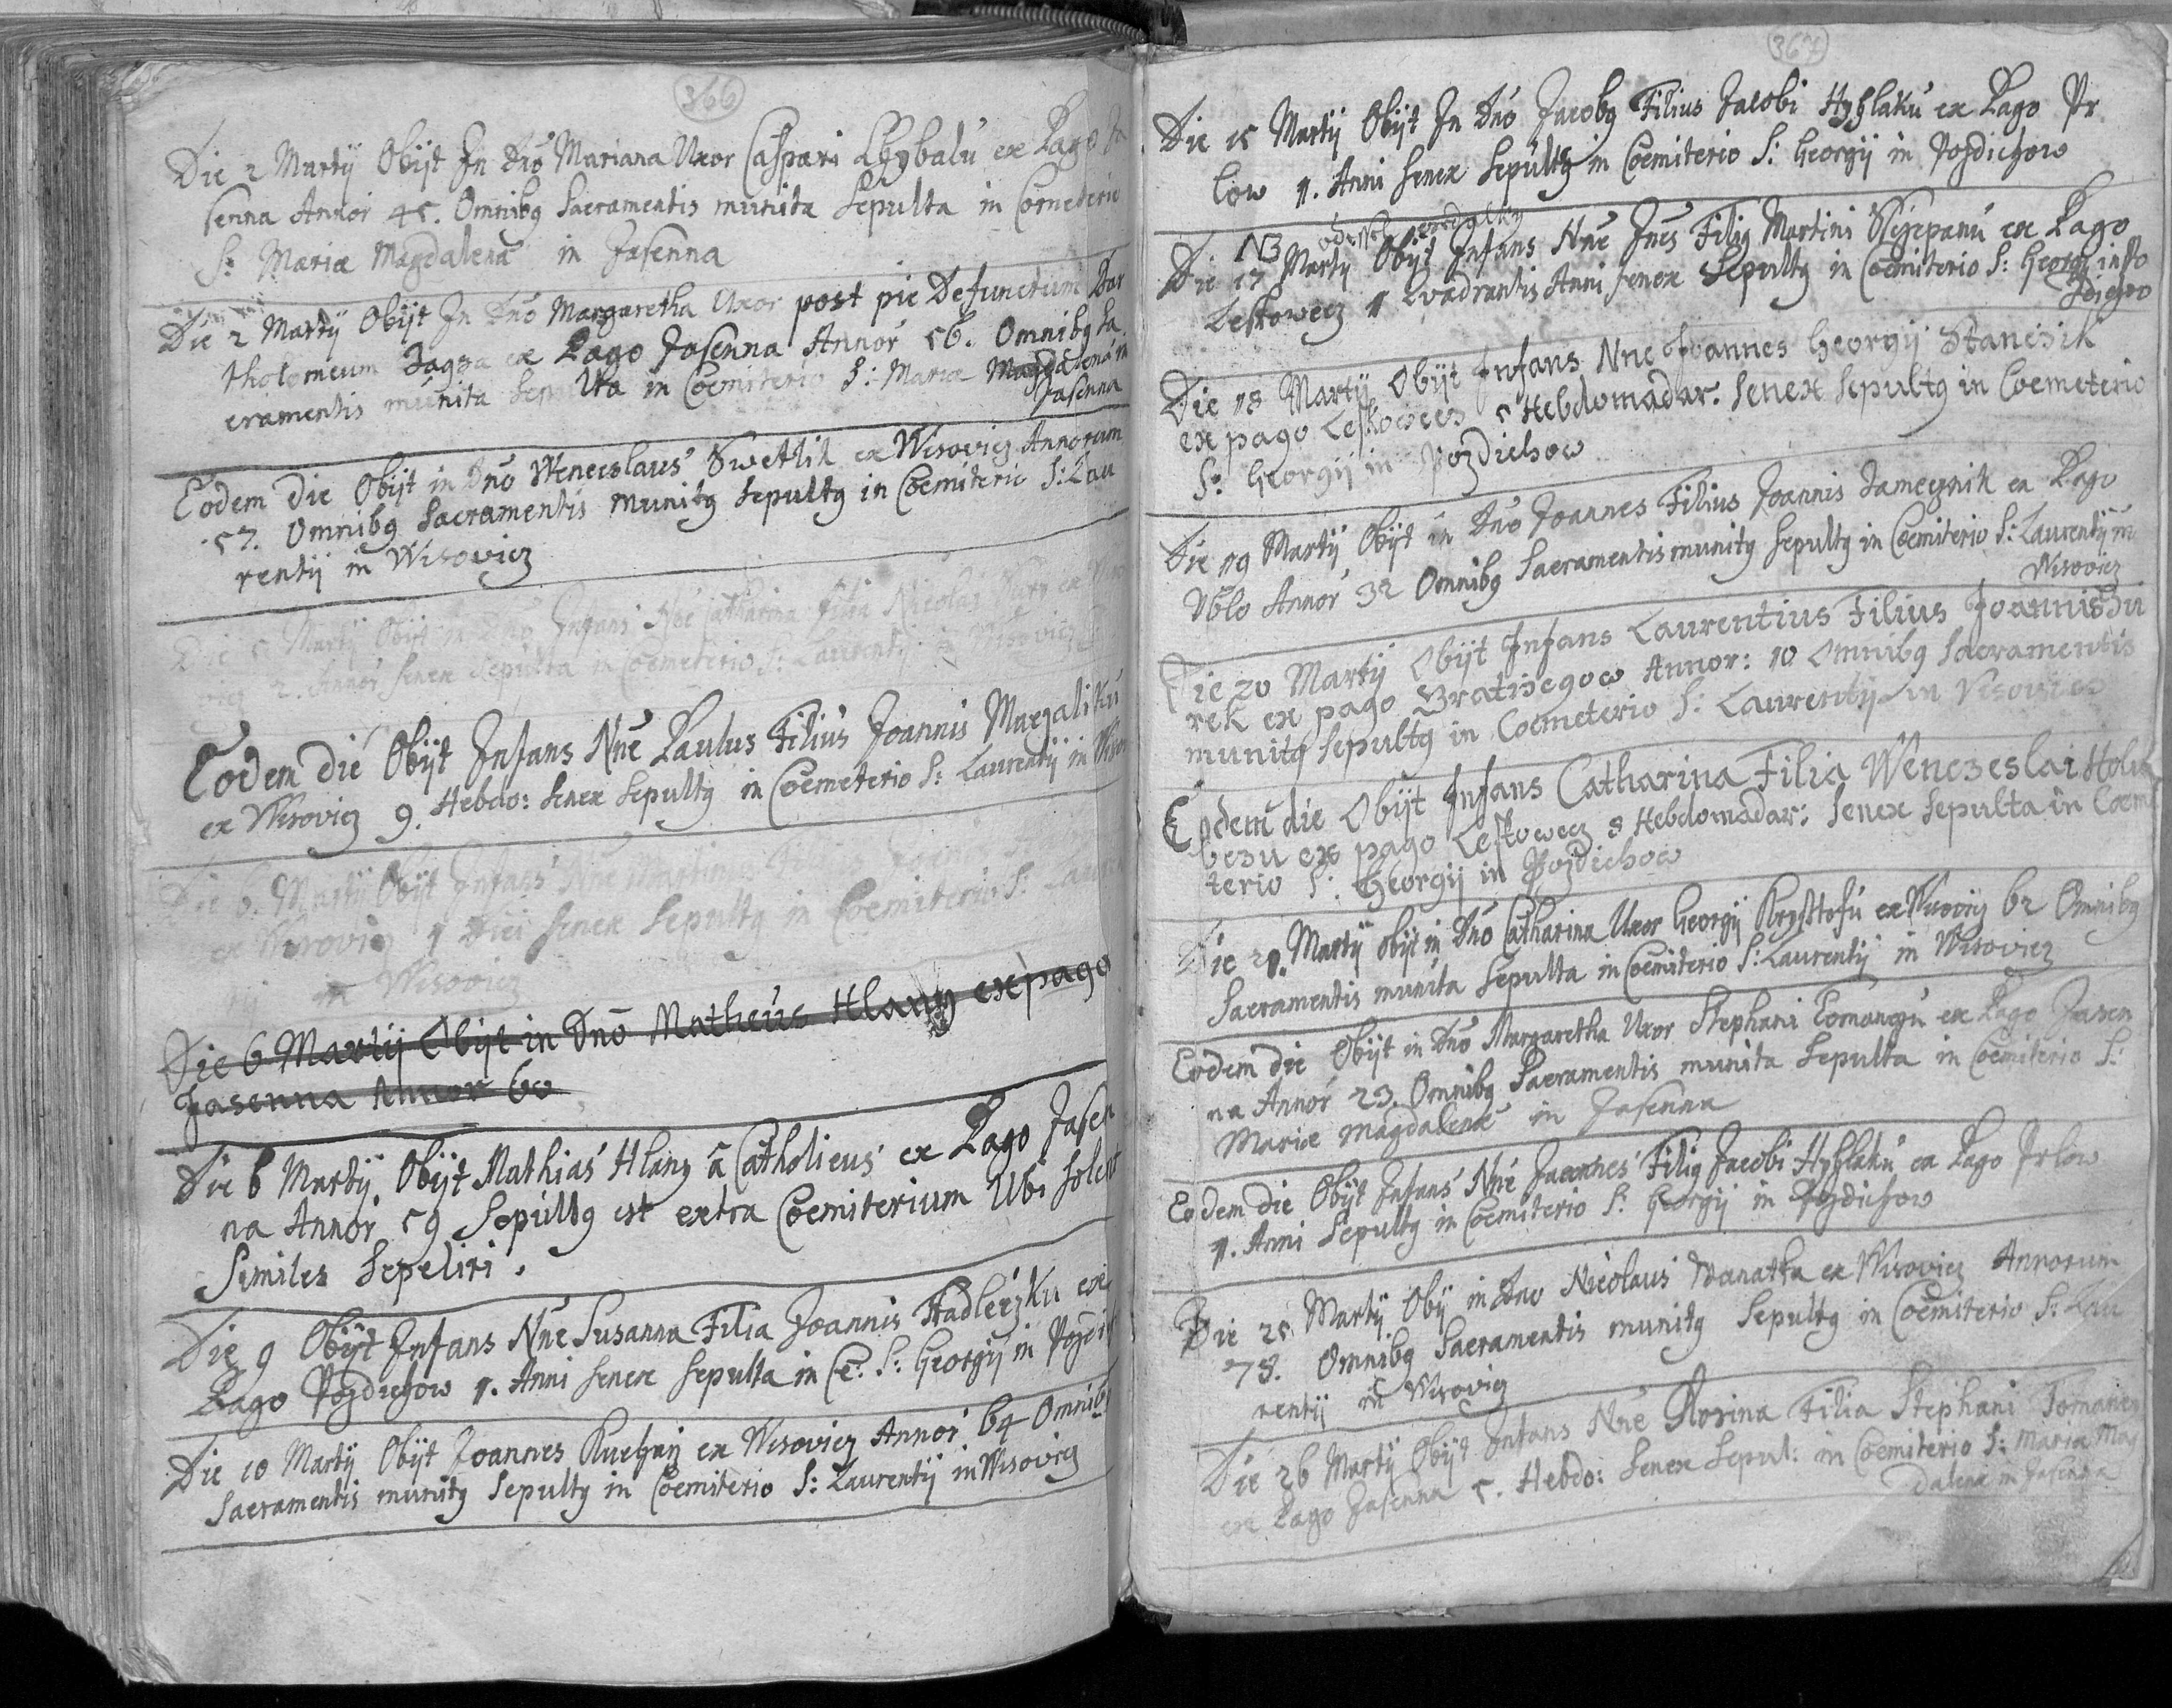 366
Die 2 Martij Obijt In Dno Mariana Uxor Caspari Chybalu ex Pago Ja
senna Annor 45. Omnibq Sacramentis munita Sepulta in Cometerio
S: Maria Magdalena in Jasenna
Die 2 Martij Obijt In Dno Margaretha Uxor post pie Defunctum Bar
tholomeum ex Pago Jasenna Annor 56. Omnibq Sa
cramentis munita Sepulta in Coemiterio S: Maria Magdalena in
Jasenna
Eodem Die Obijt in Dno Wenceslaus Swetlik ex Wisovicz Annorum
57. Omnibq Sacramentis munitq Sepultq in Coemiterio S: Lau
rentij in Wisovicz
Die 5 Martij Obijt Infans Nne Catharina Filia Nicolai ex
2. Annor Senex Sepulta in Coemeterio S: Laurentij in Wisovicz
Eodem die Obijt Infans Nne Paulus Filius Joannis Maczaliku
ex Wisovicz 9. Hebdo: Senex Sepultq in Coemeterio S: Laurentij in
Die 6. Martij Obijt Infans Nne Martinus
ex Wisovicz 1 Diei Senex Sepultq in Coemiterio S:
in Wisovicz
Die 6 Martij Obijt in Dno Matheus Hlany ex pago
Jasenna Annor 60
Die 6 Martij Obijt Mathias Hlany a Catholicus ex Pago Jasen
na Annor 59 Sepultq est extra Coemiterium Ubi solent
Similes Sepeliri.
Die 9 Obijt Infans Nne Susanna Filia Joannis Hadlerzku ex
Pago Pozdiechow 1. Anni Senex Sepulta in Ce: S: Georgij in
Die 10 Martij Obijt Joannes ex Wisovicz Annor 64 Omnibq
Sacramentis munitq Sepultq in Coemiterio S: Laurentij in Wisovicz
367
Die 15 Martij Obijt In Dno Jacobq Filius Jacobi Hyblaku ex Pago Pr
low 1. Anni Senex Sepultq in Coemiterio S: Georgij in Pozdiechow
NB
Die 17 Martij Obijt Infans Nne Jnes Filiq Martini Sstiepanu ex Pago
Leskowecz 1 Qvadrantis Anni senex Sepultq in Coemiterio S: Georgij in Po
zdiechow
Die 18 Martij Obijt Infans Nne Joannes Georgij Stanczik
ex pago Leskowecz 5 Hebdomadar: Senex Sepultq in Coemeterio
S: Georgij in Pozdiechow
Die 19 Martij Obijt in Dno Joannes Filius Joannis Zamecznik ex Pago
Ublo Annor 32 Omnibq Sacramentis munitq Sepultq in Coemiterio S: Laurentij in
Wisovicz
Die 20 Martij Obijt Infans Laurentius Filius Joannis Zu
rek ex pago Bratrzegow Annor: 10 Omnibq Sacramentis
munitq Sepultq in Coemeterio S: Laurentij in Visovicz
Eodem die Obijt Infans Catharina Filia Wenczeslai Holu
beczu ex pago Leskowecz 8 Hebdomadar: Senex Sepulta in Coeme
terio S: Georgij in Pozdiechow
Die 21. Martij obijt in Dno Catharina Uxor Georgij Krysstofu ex Wisovicz 62 Omnibq
Sacramentis munita Sepulta in Coemiterio S: Laurentij in Wisovicz
Eodem die Obijt in Dno Margaretha Uxor Stephani Tomanczu ex Pago Jasen
na Annor 23. Omnibq Sacramentis munita Sepulta in Coemiterio S:
Mariæ Magdalenæ in Jasenna
Eodem die Obijt Infans Nne Joannes Filiq Jacobi Hyblaku ex Pago Prlow
1. Anni Sepultq in Coemiterio S: Georgij in Pozdiechow
Die 25 Martij Obij in Dno Nicolaus Wanatka ex Wisovicz Annorum
78. Omnibq Sacramentis munitq Sepultq in Coemiterio S: Lau
rentij in Wisovicz
Die 26 Martij Obijt Infans Nne Rosina Filia Stephani Tomanec
ex Pago Jasenna 5. Hebdo: Senex Sepul: in Coemiterio S: Maria Mag
dalena in Jasenna